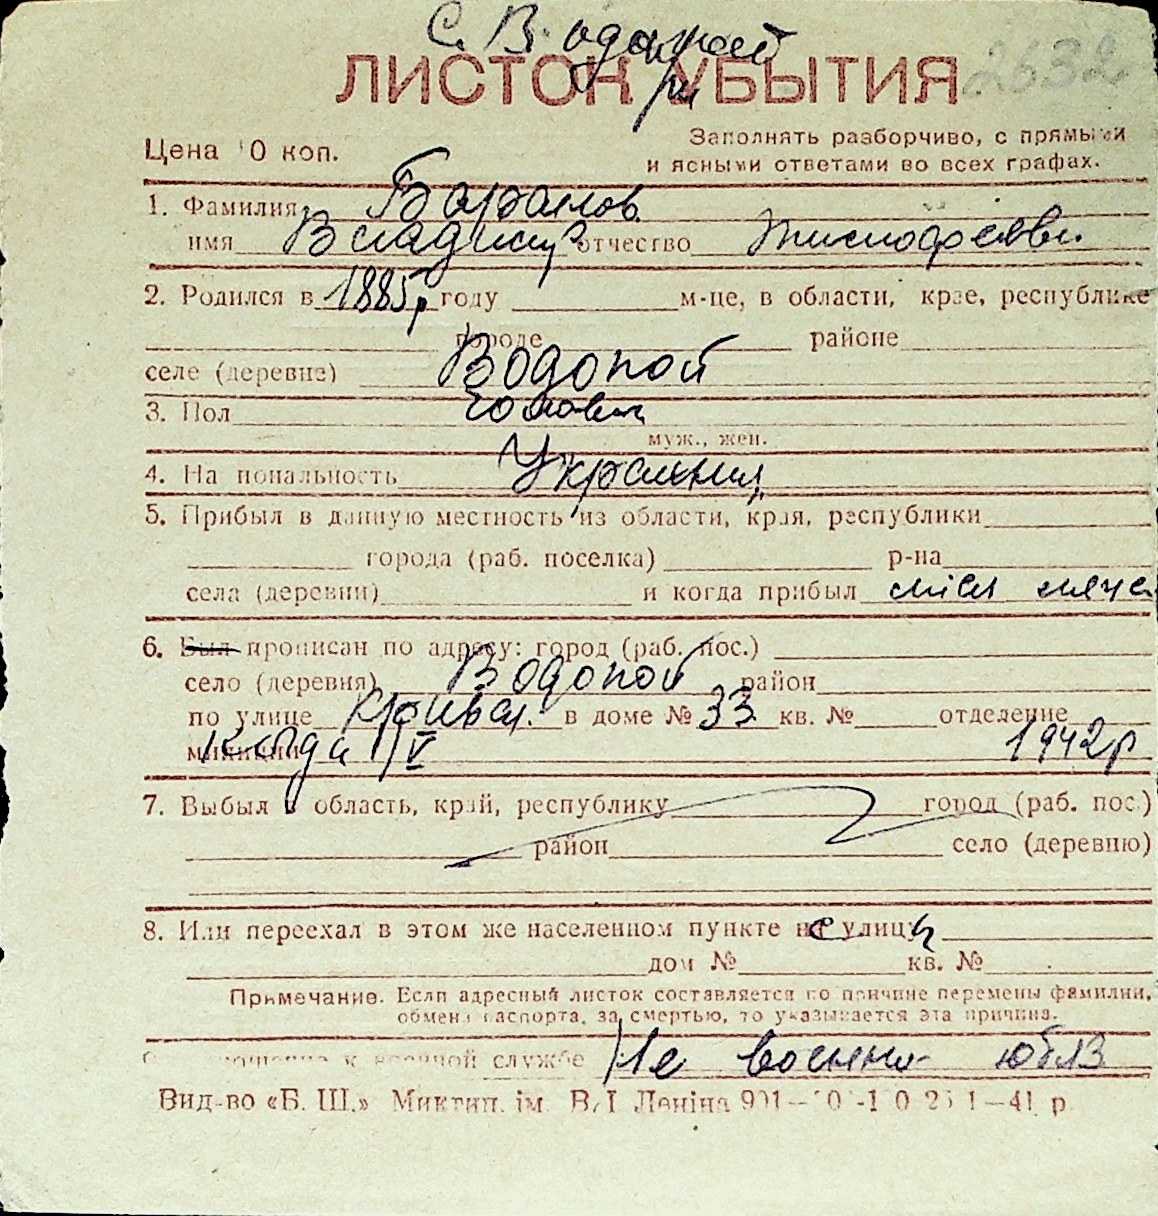 С. Водопой
2632
ЛИСТОК УБЫТИЯ
Цена 10 коп.
Заполнять разборчиво, с прямыми
и ясными ответами во всех графах.
1. Фамилия
имя Владимир отчество
2. Родился в 1885р году м-це, в области, крае, республике
городе районе
селе (деревне) Водопой
3. Пол чоловіч
муж., жен.
4. Национальность Українец
5. Прибыл в данную местность из области, края, республики
города (раб. поселка) р-на
села (деревни) и когда прибыл
6. Был прописан по адресу: город (раб. пос.)
село (деревня) Водопой район
по улице в доме № 33 кв. № отделение
милиции Когда V 1942р
7. Выбыл в область, край, республику город (раб. пос.)
район село (деревню)
8. Или переехал в этом же населенном пункте на улицу
дом № кв. №
Примечание. Если адресный листок составляется по причине перемены фамилии,
обмена паспорта, за смертью, то указывается эта причина.
к военной службе Не военно- юбяз
Вид-во «Б. Ш.» Миктип. ім. В. І. Леніна